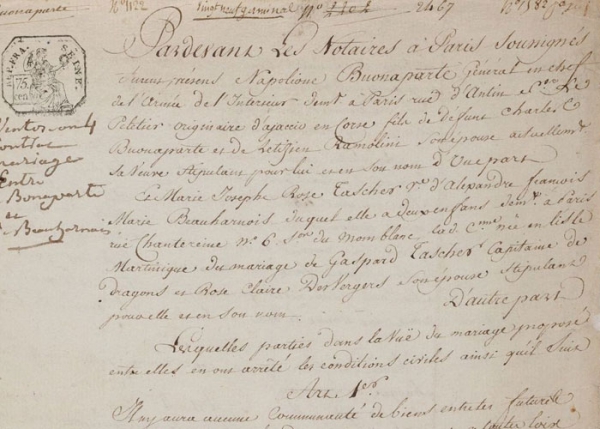 Buonaparte
N° 1122
vingt neuf germinal
2467
RÉP. FRA.
SEINE.
75
cen
Ventos an 4
Contrat
mariage
Entre
Bonaparte
et
Beauharnais
Pardevant Les Notaires à Paris Soussignés
furent présens Napolione Buonaparte Général en chef
de l'Armée de l'Interieur demt à Paris rue d'Antin
Peletier originaire d'ajaccio en Corse fils de défunt Charles
Buonaparte et de Letizien Ramolini son épouse actuellemt
sa Veuve stipulant pour lui et en son nom D'Une part
Et Marie Josephe Rose Tascher Ve d'Alexandre françois
Marie Beauharnois duquel elle a deux enfans demt à Paris
rue Chantereine n° 6 son du Montblanc lad. Cne née en l'isle
Martinique du mariage de Gaspard Tascher Capitaine de
dragons et Rose Claire Des Vergers son épouse Stipulant
pour elle et en son nom
D'autre part
Lesquelles parties dans la Vüe du mariage proposé
entre elles en ont arrêté les conditions civiles ainsi qu'il suit
Art. 1er
Il n'y aura aucune Communauté de biens entre les futurs